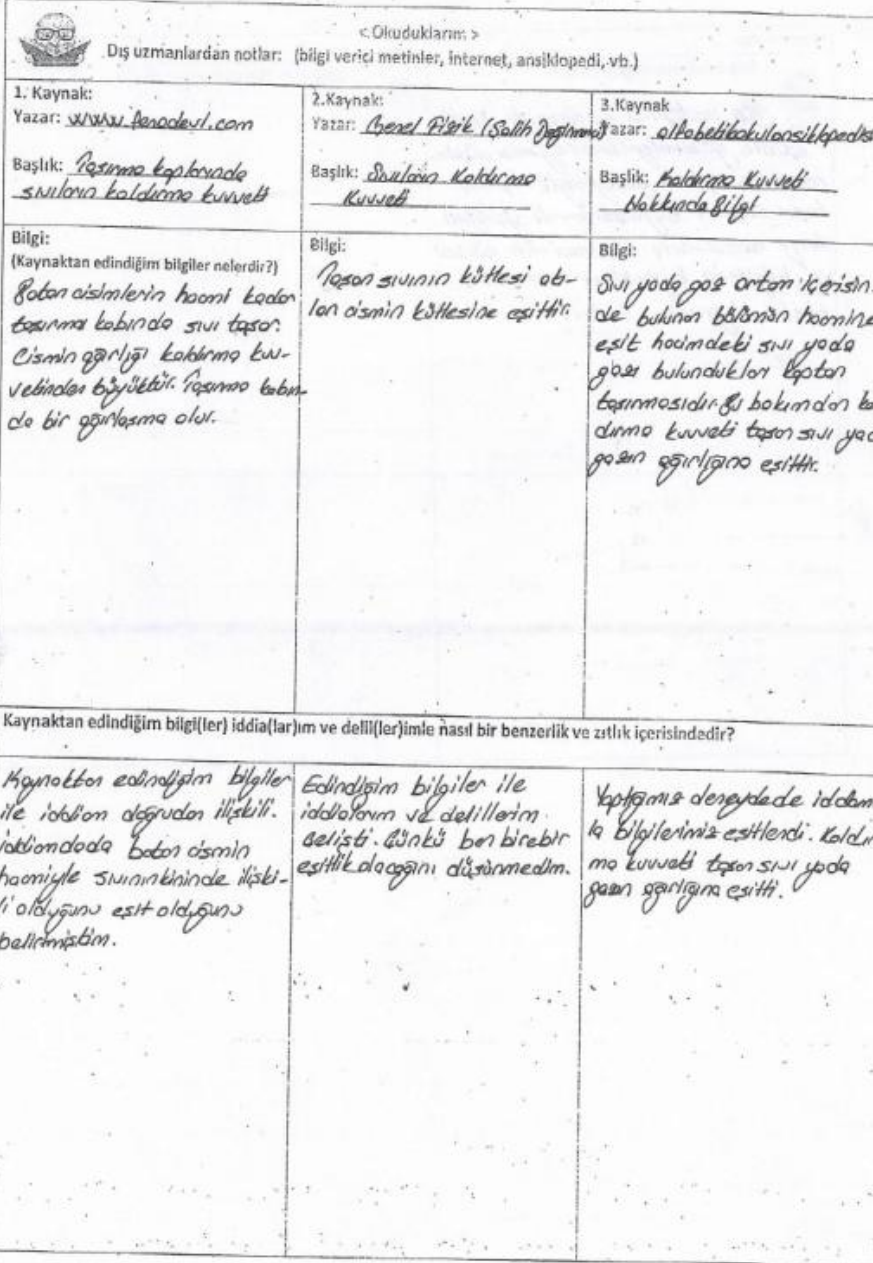 < Okuduklarım >
Dış uzmanlardan notlar: (bilgi verici metinler, internet, ansiklopedi, vb.)
1. Kaynak:
Yazar: www.fenodevi.com
Başlık: Taşırma kaplarında
sıvıların kaldırma kuvveti
2.Kaynak:
Yazar: Genel Fizik (Salih
Başlık: Sıvıların Kaldırma
Kuvveti
3.Kaynak
Yazar: alfabetikokulansiklopedisi
Başlık: Kaldırma Kuvveti
Hakkında Bilgi
Bilgi:
(Kaynaktan edindiğim bilgiler nelerdir?)
Batan cisimlerin hacmi kadar
taşırma kabında sıvı taşar.
Cismin ağırlığı kaldırma kuv-
vetinden büyüktür. Taşırma kabın-
da bir ağırlaşma olur.
Bilgi:
Taşan sıvının kütlesi atı-
lan cismin kütlesine eşittir.
Bilgi:
Sıvı yada gaz ortam içerisin-
de bulunan bölümün hacmine
eşit hacimdeki sıvı yada
gazı bulundukları kaptan
taşırmasıdır. Bu bakımdan ka
dırma kuvveti taşan sıvı yad
gazın ağırlığına eşittir.
Kaynaktan edindiğim bilgi(ler) iddia(lar)ım ve delil(ler)imle nasıl bir benzerlik ve zıtlık içerisindedir?
Kaynaktan edindiğim bilgiler
ile iddiam doğrudan ilişkili.
iddiamdada batan cismin
hacmiyle sıvınınkininde ilişki-
li olduğunu eşit olduğunu
belirtmiştim.
Edindiğim bilgiler ile
iddialarım ve delillerim
çelişti. Çünkü ben birebir
eşitlik olacağını düşünmedim.
Yaptığımız deneydede iddiam
la bilgilerimiz eşitlendi. Kaldır
ma kuvveti taşan sıvı yada
gazın ağırlığına eşitti.